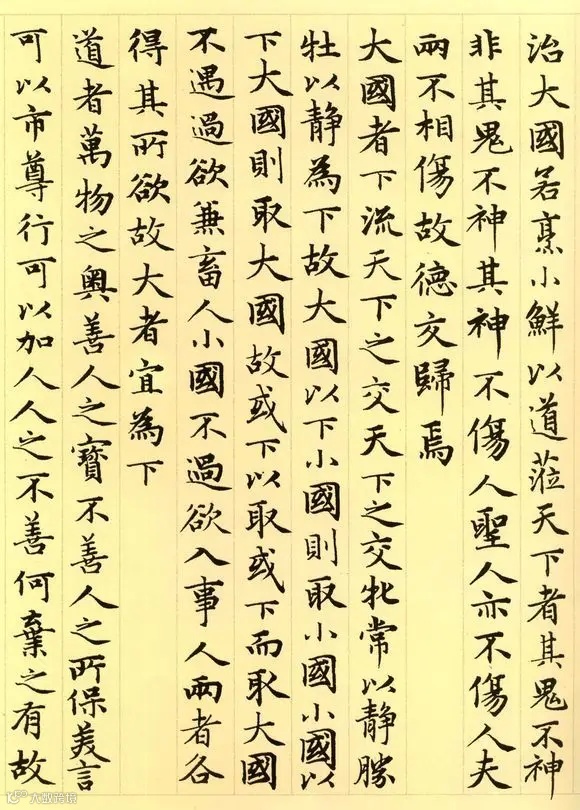 治大國若烹小鮮以道蒞天下者其鬼不神
非其鬼不神其神不傷人聖人亦不傷人夫
兩不相傷故德交歸焉
大國者下流天下之交天下之交牝常以靜勝
牡以靜為下故大國以下小國則取小國小國以
下大國則取大國故或下以取或下而取大國
不遇過欲兼畜人小國不過欲入事人兩者各
得其所欲故大者宜為下
道者萬物之奧善人之寶不善人之所保美言
可以市尊行可以加人人之不善何棄之有故
大数跨境